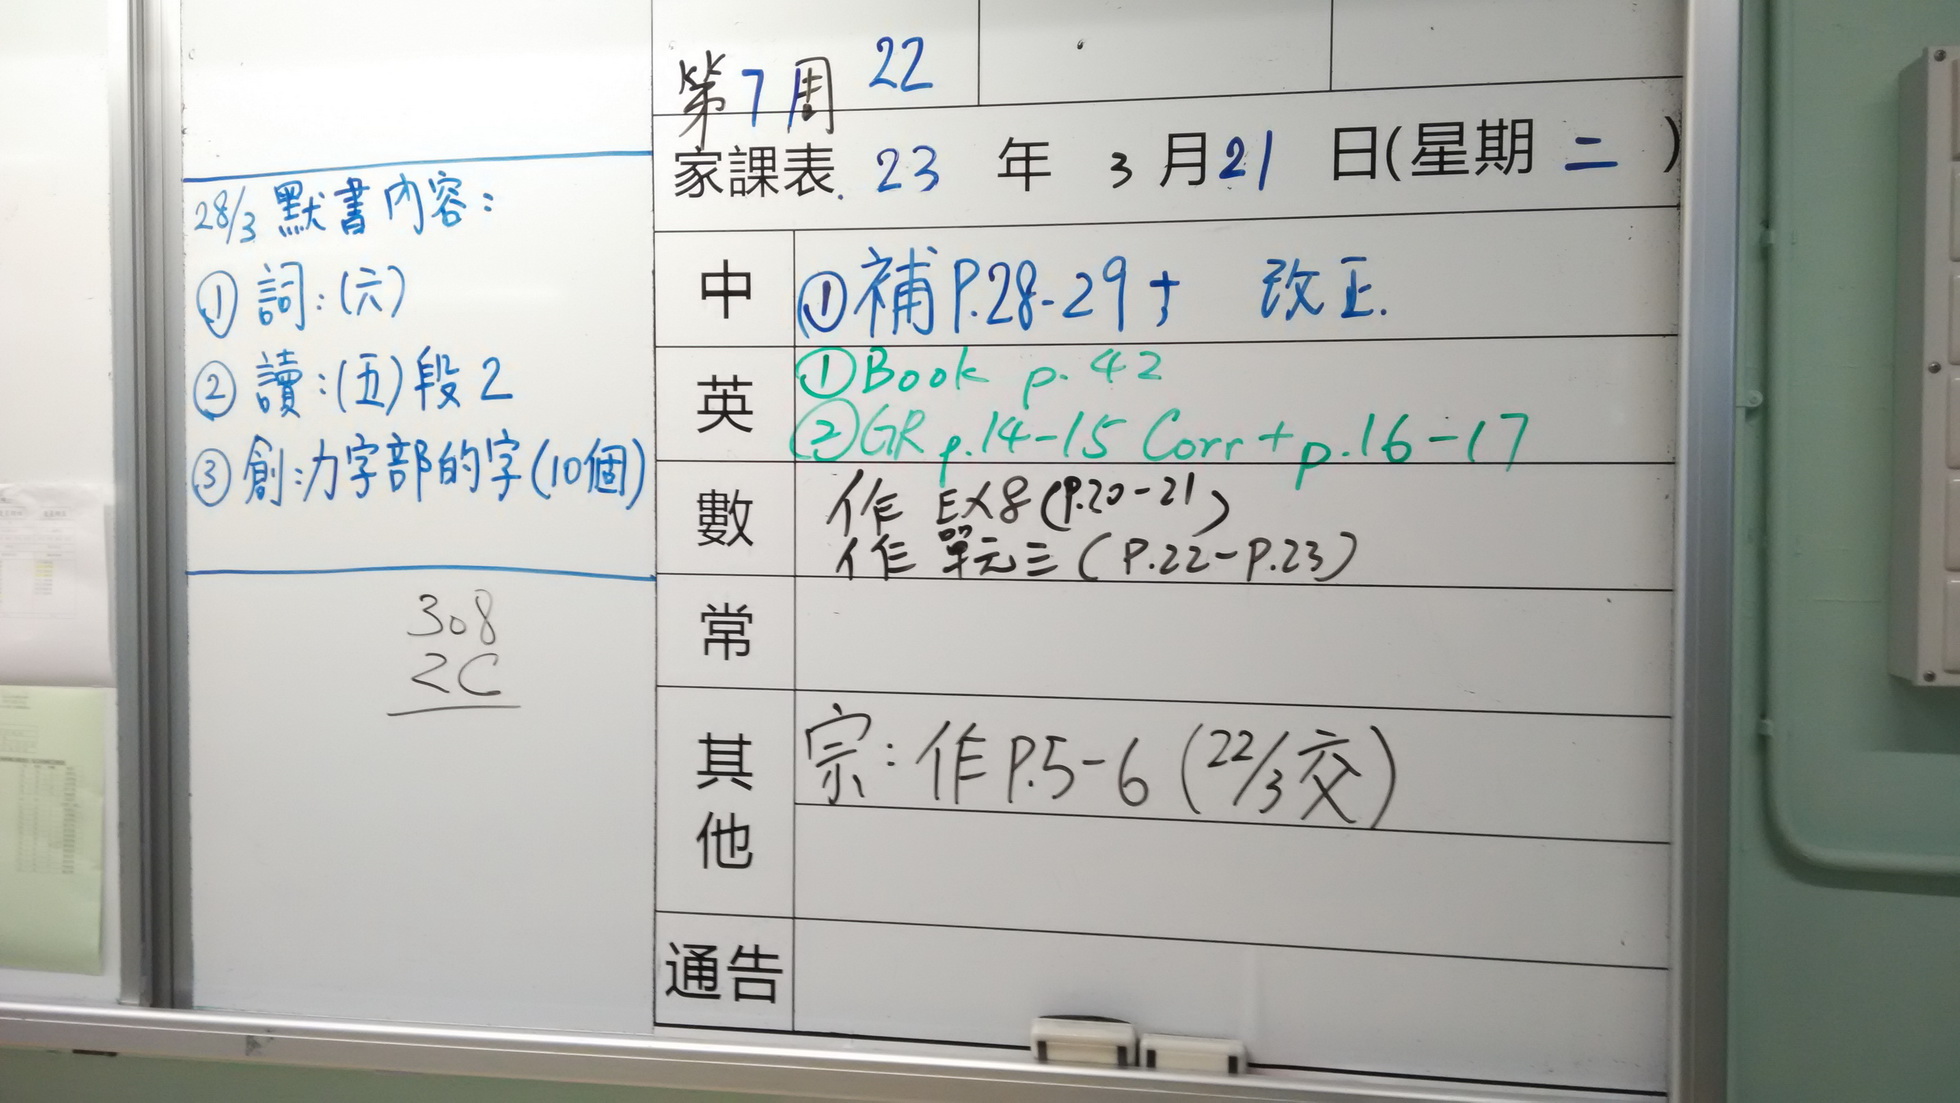 28/3 默書內容：
① 詞：(六)
② 讀：(五) 段 2
③ 創：力字部的字 (10個)
308
2C
第 7 周 22
家課表 23 年 3 月 21 日(星期 二 )
中
① 補 P.28-29 + 改正.
英
① Book p. 42
② GR p.14-15 Corr + p.16-17
數
作 EX8 (P.20-21)
作 單元三 (P.22-P.23)
常
其他
宗：作 P.5-6 (22/3 交)
通告